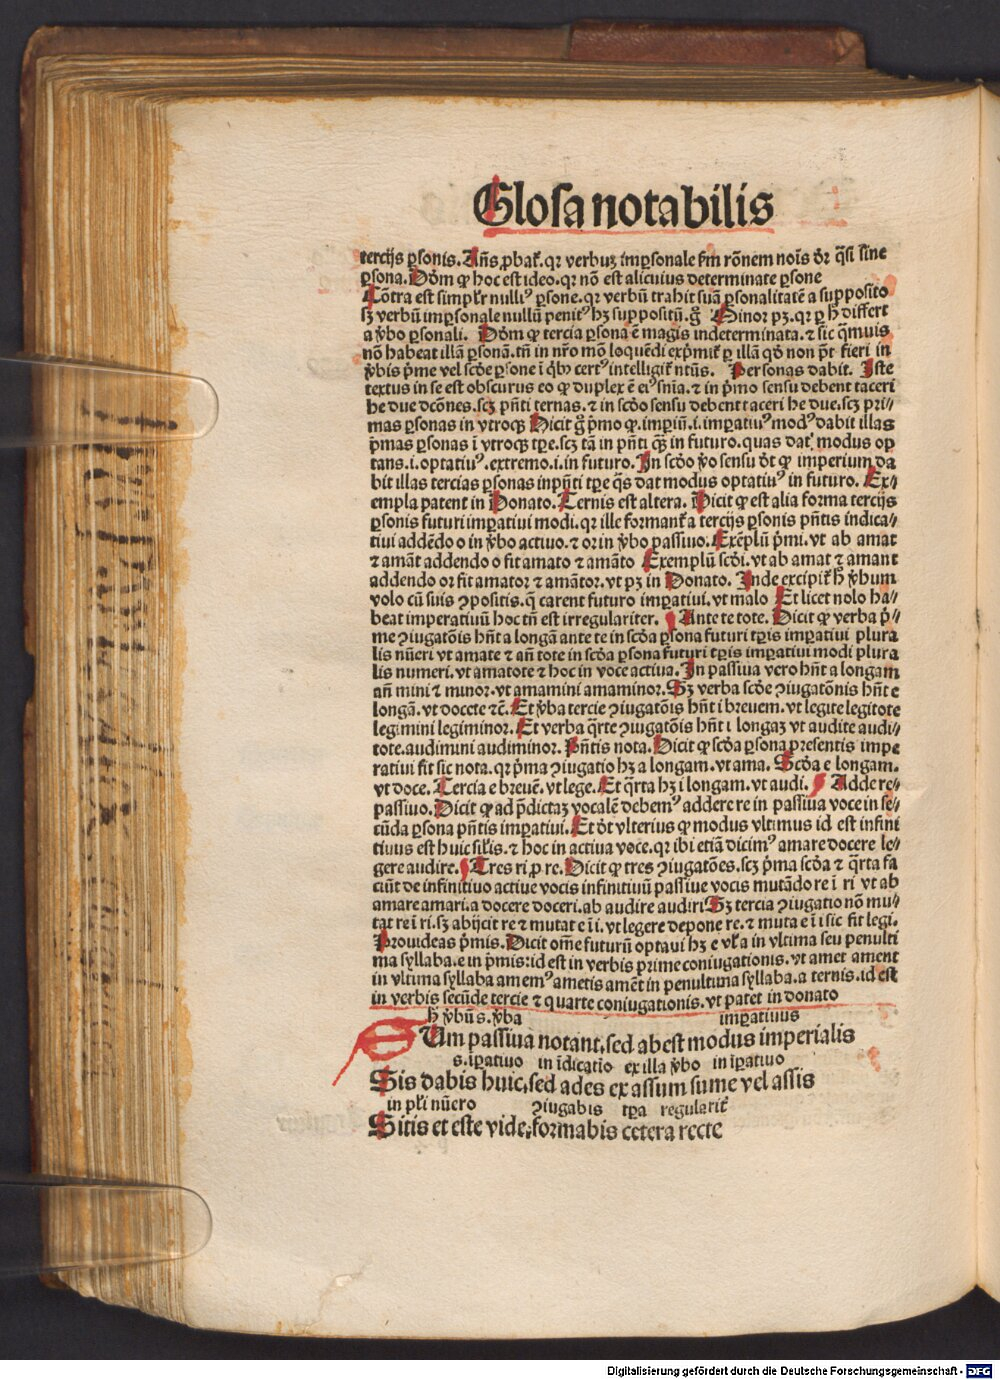 Glosa notabilis
tercijs ꝑsonis. Añs ꝓbaꝶ. qꝛ verbuꝫ imꝑsonale ẜm rōnem noīs dꝛ q̄si sine
ꝑsona. Dōm ꝙ hoc est ideo. qꝛ nō est alicuius determinate ꝑsone
Cōtra est simplꝛ nulliꝰ ꝑsone. qꝛ verbū trahit suā ꝑsonalitatē a supposito
sꝫ verbū imꝑsonale nullū penitꝰ hꝫ suppositū. gͦ Minor pꝫ. qꝛ ꝑ h̄ differt
a v̄bo ꝑsonali. Dōm ꝙ tercia ꝑsona ē magis indeterminata. ⁊ sic q̄muis
nō habeat illā ꝑsonā. tñ in nr̄o mō loquēdi exp̄miꝶ ꝑ illā qd̄ non p̄t fieri in
v̄bis p̄me vel scd̄e ꝑsone ī qͥbꝰ certꝰ intelligiꝶ ntūs. Personas dabit. Iste
textus in se est obscurus eo ꝙ duplex ē eiꝰ sn̄ia. ⁊ in p̄mo sensu debent taceri
he due dcōnes. scꝫ pn̄ti ternas. ⁊ in scd̄o sensu debent taceri he due. scꝫ pri⸗
mas ꝑsonas in vtroqꝫ Dicit gͦ p̄mo ꝙ. imꝑiū. i. imꝑatiuꝰ modꝰ dabit illas
p̄mas ꝑsonas ī vtroqꝫ tꝑe. scꝫ tā in pn̄ti qꝫ in futuro. quas dat modus op
tans. i. optatiuꝰ. extremo. i. in futuro. In scd̄o v̄o sensu dt̄ ꝙ imperium da
bit illas tercias ꝑsonas in pn̄ti tꝑe q̄s dat modus optatiuꝰ in futuro. Ex⸗
empla patent in Donato. Ternis est altera. Dicit ꝙ est alia forma tercijs
ꝑsonis futuri imꝑatiui modi. qꝛ ille formanꝶ a tercijs ꝑsonis pn̄tis indica⸗
tiui addēdo o in v̄bo actiuo. ⁊ or in v̄bo passiuo. Exēplū p̄mi. vt ab amat
⁊ amāt addendo o fit amato ⁊ amāto Exemplū scd̄i. vt ab amat ⁊ amant
addendo or fit amator ⁊ amātor. vt pꝫ in Donato. Inde excipiꝶ h̄ v̄bum
volo cū suis ꝯpositis. q̄ carent futuro imꝑatiui. vt malo Et licet nolo ha⸗
beat imperatiuū hoc tn̄ est irregulariter. Ante te tote. Dicit ꝙ verba p̄⸗
me ꝯiugatōis hn̄t a longā ante te in scd̄a ꝑsona futuri tꝑis imꝑatiui plura
lis nūeri vt amate ⁊ an̄ tote in scd̄a ꝑsona futuri tꝑis imꝑatiui modi plura
lis numeri. vt amatote ⁊ hoc in voce actiua. In passiua vero hn̄t a longam
an̄ mini ⁊ minor. vt amamini amaminor. Sꝫ verba scd̄e ꝯiugatōnis hn̄t e
longā. vt docete ⁊c̄. Et v̄ba tercie ꝯiugatōis hn̄t i breuem. vt legite legitote
legimini legiminor. Et verba q̄rte ꝯiugatōis hn̄t i longaꝫ vt audite audi⸗
tote. audimini audiminor. Pn̄tis nota. Dicit ꝙ scd̄a ꝑsona presentis impe
ratiui fit sic nota. qꝛ p̄ma ꝯiugatio hꝫ a longam. vt ama. Scd̄a e longam.
vt doce. Tercia e breuē. vt lege. Et q̄rta hꝫ i longam. vt audi. Adde re⸗
passiuo. Dicit ꝙ ad p̄dictaꝫ vocalē debemꝰ addere re in passiua voce in se⸗
cūda ꝑsona pn̄tis imꝑatiui. Et dt̄ vlterius ꝙ modus vltimus id est infini
tiuus est huic sil̄is. ⁊ hoc in actiua voce. qꝛ ibi etiā dicimꝰ amare docere le⸗
gere audire. Tres ri ꝓ re. Dicit ꝙ tres ꝯiugatōes. scꝫ p̄ma scd̄a ⁊ q̄rta fa
ciūt de infinitiuo actiue vocis infinitiuū passiue vocis mutādo re ī ri vt ab
amare amari. a docere doceri. ab audire audiri Sꝫ tercia ꝯiugatio nō mu⸗
tat re ī ri. sꝫ abijcit re ⁊ mutat e ī i. vt legere depone re. ⁊ muta e ī i sic fit legi.
Prouideas p̄mis. Dicit om̄e futurū optaui hꝫ e vl̄ a in vltima seu penulti
ma syllaba. e in p̄mis: id est in verbis prime coniugationis. vt amet ament
in vltima syllaba amemꝰ ametis amēt in penultima syllaba. a ternis. id est
in verbis secūde tercie ⁊ quarte coniugationis. vt patet in donato
h̄ v̄bū s. v̄ba imꝑatiuus
Sum passiua notant, sed abest modus imperialis
s. iꝑatiuo in īdicatio ex illa v̄bo in iꝑatiuo
Sis dabis huic, sed ades ex assum sume vel assis
in pl̄i nūero ꝯiugabis tꝑa regulariꝶ
Sitis et este vide, formabis cetera recte
Digitalisierung gefördert durch die Deutsche Forschungsgemeinschaft - DFG